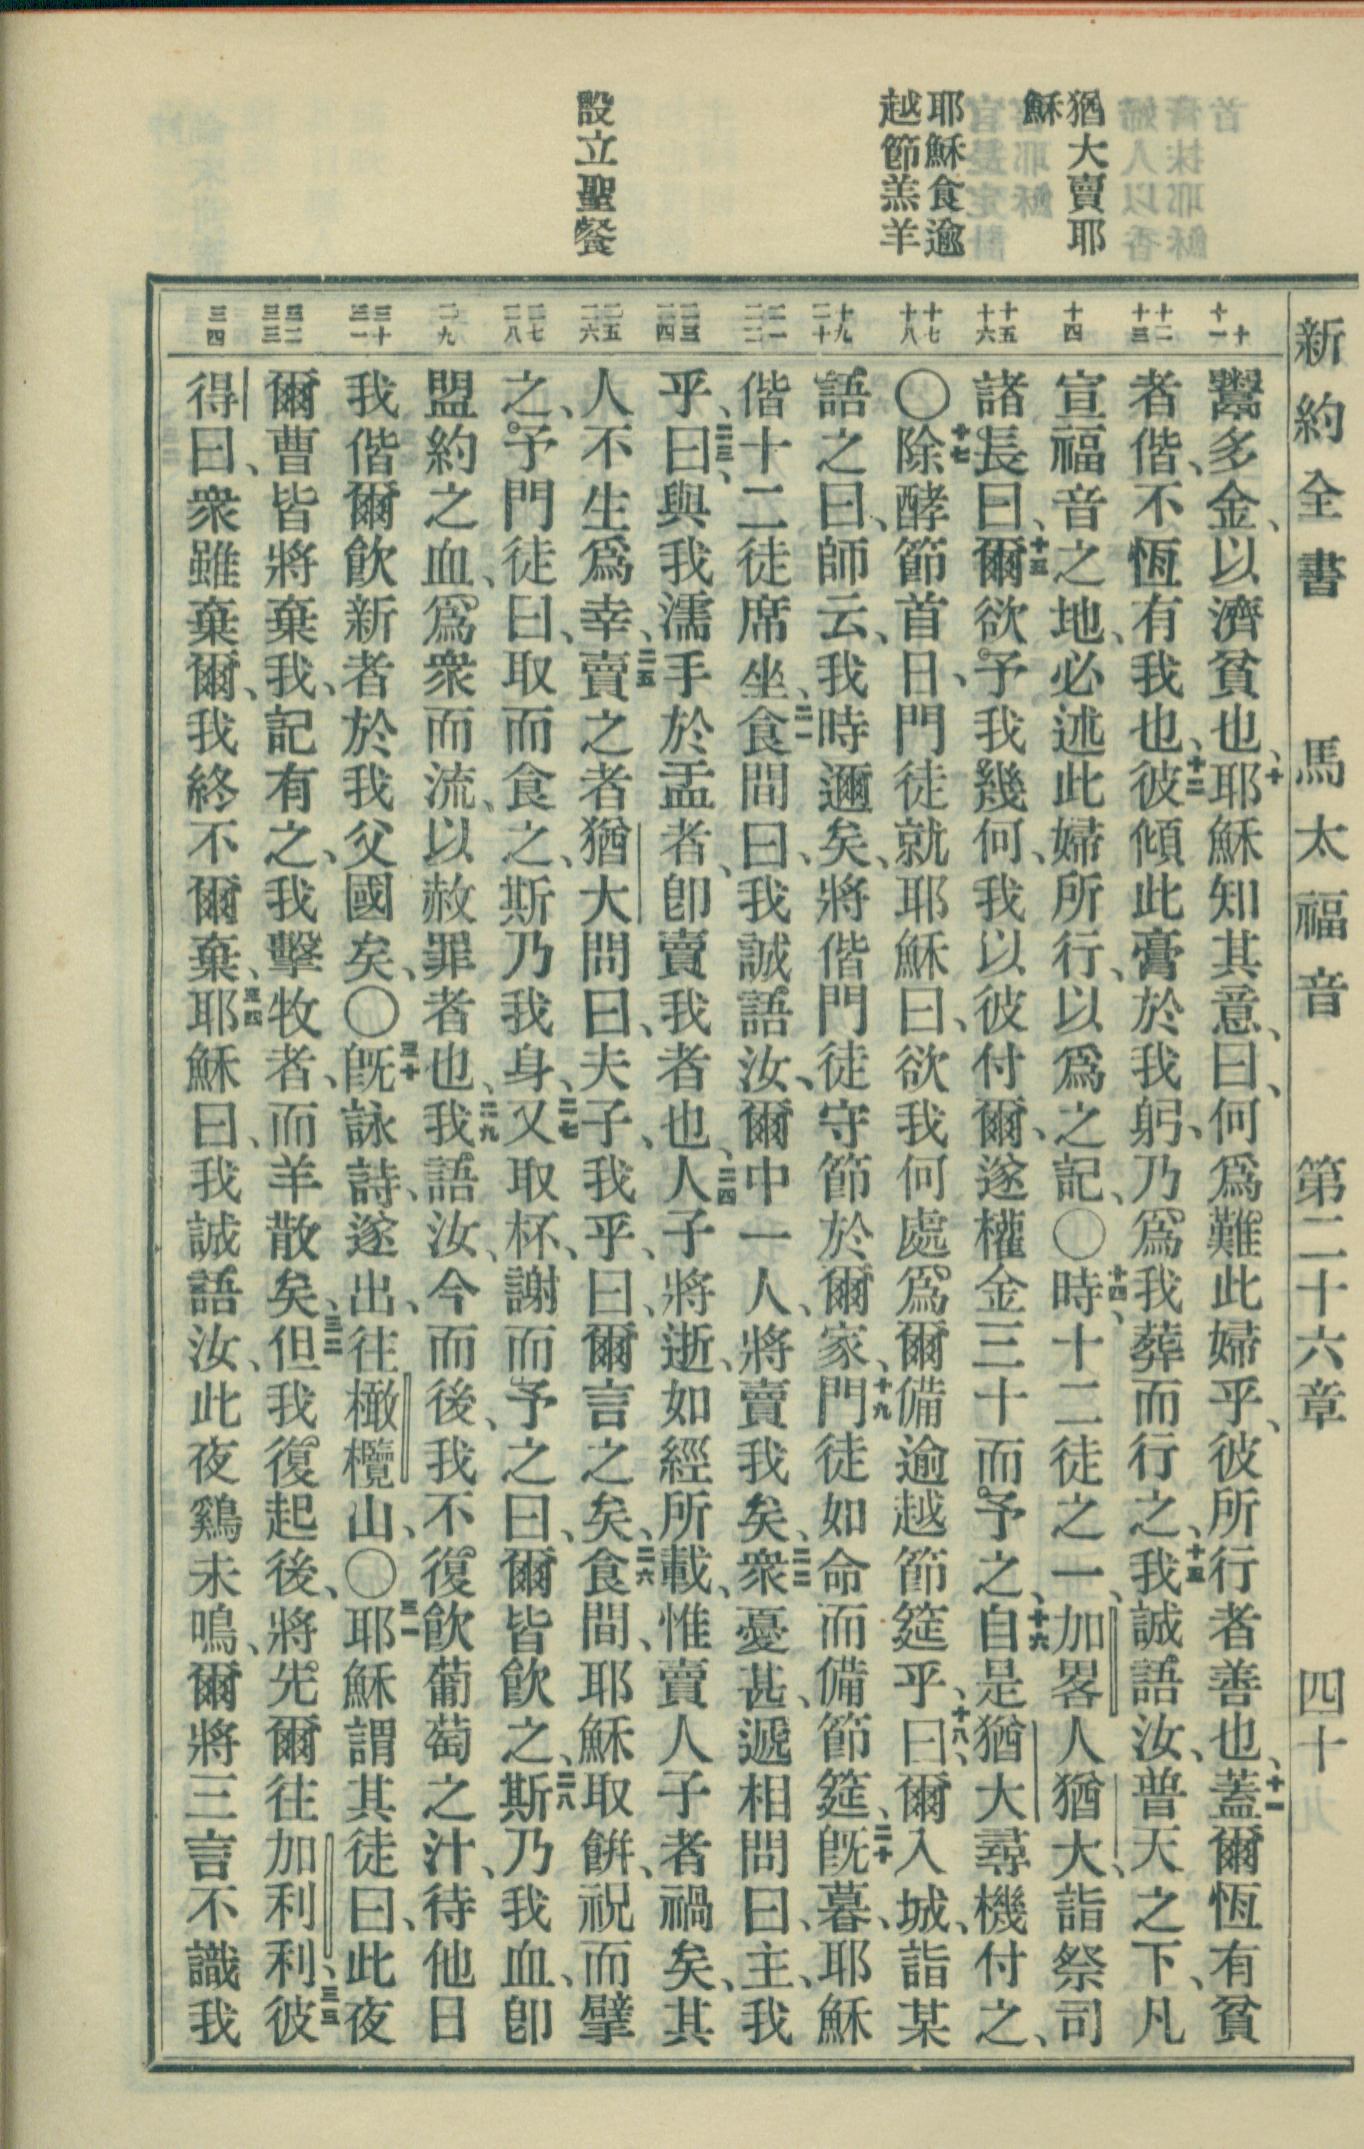 新約全書 馬太福音 第二十六章 四十
猶大賣耶
穌
耶穌食逾
越節羔羊
設立聖餐
十
十一
十二
十三
十四
十五
十六
十七
十八
十九
二十
二一
二二
二三
二四
二五
二六
二七
二八
二九
三十
三一
三二
三三
三四
鬻多金、以濟貧也、十耶穌知其意、曰、何爲難此婦乎、彼所行者善也、十一蓋爾恆有貧
者偕、不恆有我也、十二彼傾此膏於我躬、乃爲我葬而行之、十三我誠語汝、普天之下、凡
宣福音之地、必述此婦所行、以爲之記、〇十四時、十二徒之一、加畧人猶大、詣祭司
諸長曰、十五爾欲予我幾何、我以彼付爾、遂權金三十而予之、十六自是猶大尋機付之、
〇十七除酵節首日、門徒就耶穌曰、欲我何處爲爾備逾越節筵乎、十八曰、爾入城、詣某
語之曰、師云、我時邇矣、將偕門徒守節於爾家、十九門徒如命而備節筵、二十旣暮、耶穌
偕十二徒席坐、二一食間曰、我誠語汝、爾中一人、將賣我矣、二二衆憂甚、遞相問曰、主、我
乎、二三曰、與我濡手於盂者、卽賣我者也、二四人子將逝、如經所載、惟賣人子者禍矣、其
人不生爲幸、二五賣之者猶大問曰、夫子、我乎、曰、爾言之矣、二六食間、耶穌取餅、祝而擘
之、予門徒曰、取而食之、斯乃我身、二七又取杯、謝而予之曰、爾皆飮之、二八斯乃我血、卽
盟約之血、爲衆而流、以赦罪者也、二九我語汝、今而後、我不復飮葡萄之汁、待他日
我偕爾飮新者於我父國矣、〇三十旣詠詩、遂出、往橄欖山、〇三一耶穌謂其徒曰、此夜
爾曹皆將棄我、記有之、我擊牧者、而羊散矣、三二但我復起後、將先爾往加利利、三三彼
得曰、衆雖棄爾、我終不爾棄、三四耶穌曰、我誠語汝、此夜鷄未鳴、爾將三言不識我